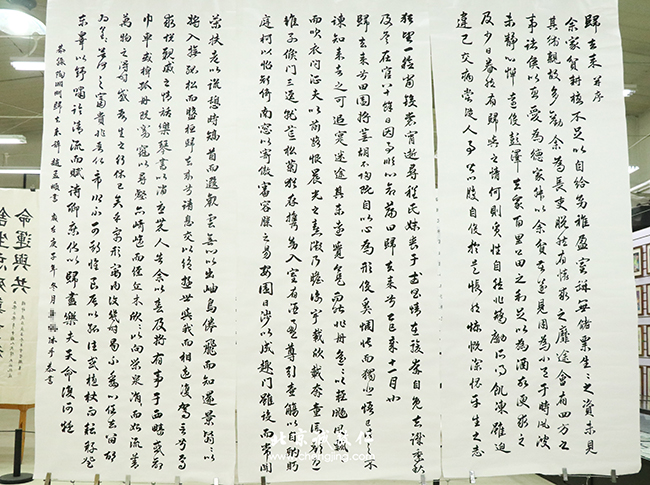 歸去來兮並序
余家貧耕植不足以自給幼稚盈室缾無儲粟生生之資未見
其術親故多勸余為長吏脫然有懷求之靡途會有四方之
事諸侯以惠愛為德家叔以余貧苦遂見用為小邑于時風波
未靜心憚遠役彭澤去家百里公田之利足以為酒故便求之
及少日眷然有歸歟之情何則質性自然非矯勵所得飢凍雖迫
違己交病嘗從人事皆口腹自役於是悵然慷慨深愧平生之志
猶望一稔當斂裳宵逝尋程氏妹喪于武昌情在駿奔自免去職仲秋
及冬在官八十餘日因事順心命篇曰歸去來兮乙巳歲十一月也
歸去來兮田園將蕪胡不歸既自以心為形役奚惆悵而獨悲悟已往之不
諫知來者之可追實迷途其未遠覺今是而昨非舟遙遙以輕颺風飄飄
而吹衣問征夫以前路恨晨光之熹微乃瞻衡宇載欣載奔童僕歡迎
稚子候門三逕就荒松菊猶存攜幼入室有酒盈尊引壺觴以自酌眄
庭柯以怡顏倚南窗以寄傲審容膝之易安園日涉以成趣門雖設而常關
策扶老以流憩時矯首而遐觀雲無心以出岫鳥倦飛而知還景翳翳以
將入撫孤松而盤桓歸去來兮請息交以絕遊世與我而相違復駕言兮焉
求悅親戚之情話樂琴書以消憂農人告余以春及將有事于西疇或命
巾車或棹孤舟既窈窕以尋壑亦崎嶇而經丘木欣欣以向榮泉涓涓而始流羨
萬物之得時感吾生之行休已矣乎寓形宇內復幾時曷不委心任去留胡
為乎遑遑欲何之富貴非吾願帝鄉不可期懷良辰以孤往或植杖而耘耔登
東皋以舒嘯臨清流而賦詩聊乘化以歸盡樂夫天命復何疑
恭錄陶淵明歸去來辭 歲在庚子年冬月 書
命運與共
舍生忘死
北京诚敬仁